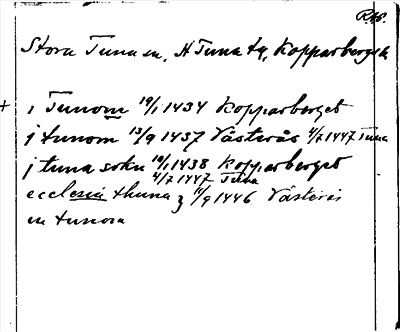 Rap.
Stora Tuna sn, St Tuna tg, Kopparbergs l.
+ i Tunom 19/1 1434 Kopparberget
j tunom 13/9 1437 Västerås 4/7 1447 Tuna
j tuna sokn 19/1 1438 Kopparberget
4/7 1447 Tuna
ecclesia thuna 14/9 1446 Västerås
in tunom